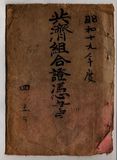 昭和十九年度
共濟組合證憑書